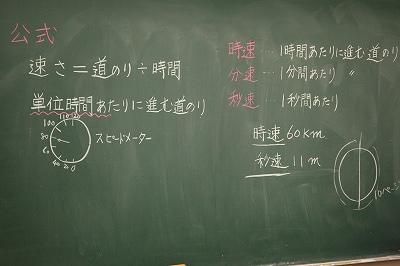 公式
速さ=道のり÷時間
単位時間あたりに進む道のり
スピードメーター
120
110
100
80
60
40
20
0
時速…1時間あたりに進む道のり
分速…1分間あたり 〃
秒速…1秒間あたり
時速60km
秒速11m